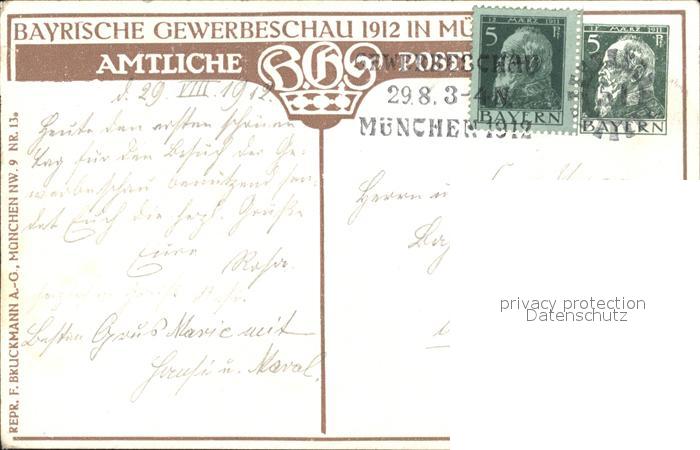 BAYRISCHE GEWERBESCHAU 1912 IN MÜ
AMTLICHE POSTK
12. MÄRZ 1911
5 5 Pf
BAYERN
12. MÄRZ 1911
5 Pf
BAYERN
GEWERBESCHAU
29.8. 3-4 N.
MÜNCHEN 1912
d. 29. VIII 1912.
Heute den ersten schönen
Tag für den Besuch der Ge-
werbeschau benützend sen-
det Euch die herzl. Grüße
Eure
Rosa.
Besten Gruss Marie mit
Hansi u.
Herrn u
privacy protection
Datenschutz
REPR. F. BRUCKMANN A.-G., MÜNCHEN NW. 9 NR. 13a